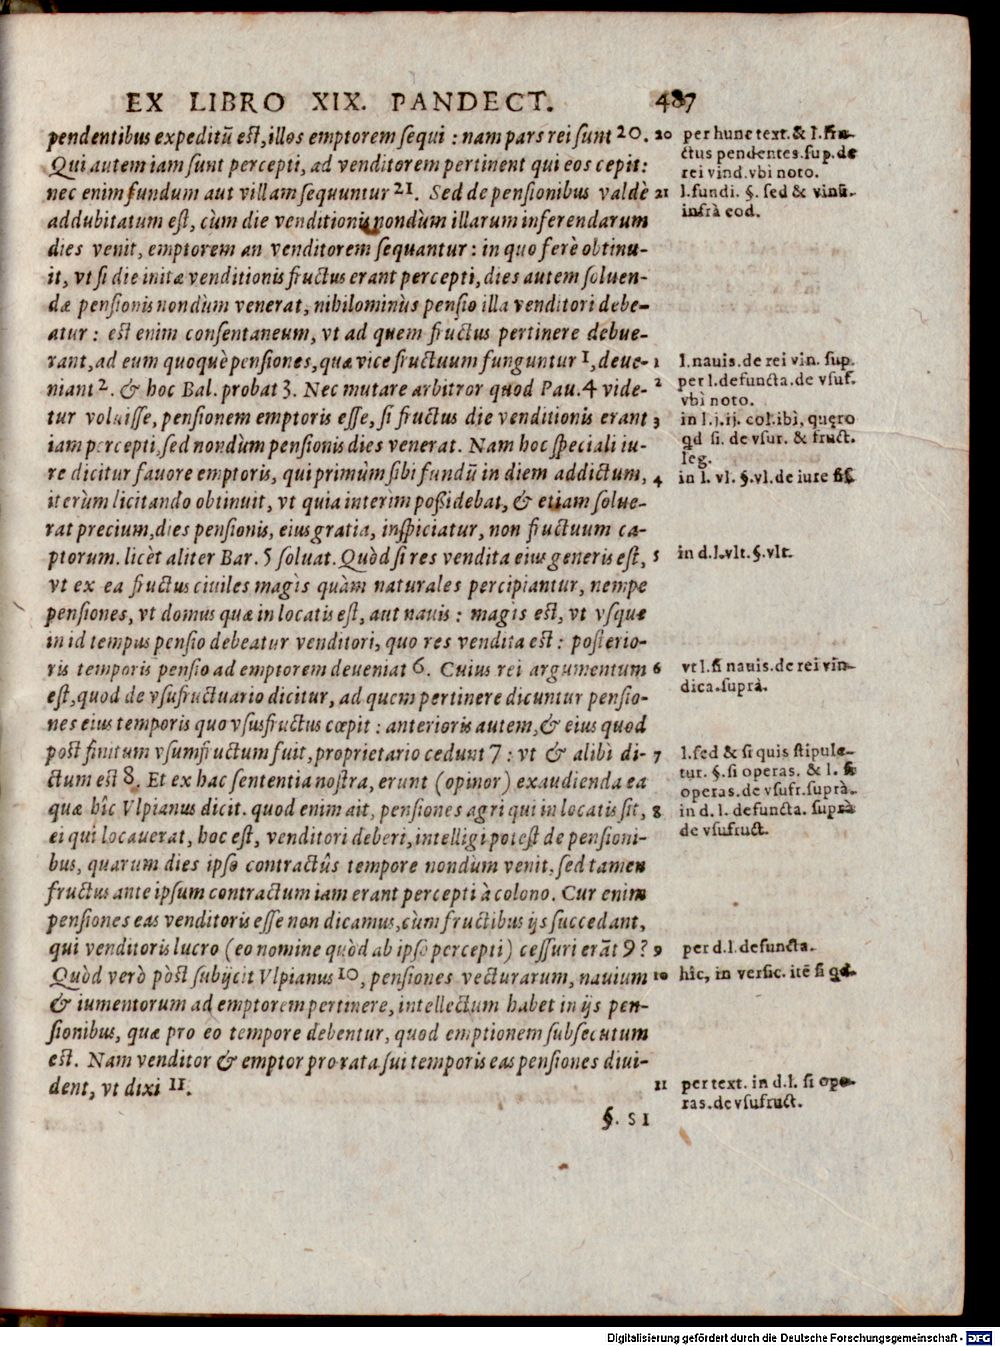 EX LIBRO XIX. PANDECT. 487
pendentibus expeditū est, illos emptorem sequi : nam pars rei sunt 20.
Qui autem iam sunt percepti, ad venditorem pertinent qui eos cepit:
nec enim fundum aut villam sequuntur 21. Sed de pensionibus valdè
addubitatum est, cùm die venditionis nondùm illarum inferendarum
dies venit, emptorem an venditorem sequantur : in quo ferè obtinu-
it, vt si die initæ venditionis fructus erant percepti, dies autem soluen-
dæ pensionis nondùm venerat, nihilominùs pensio illa venditori debe-
atur : est enim consentaneum, vt ad quem fructus pertinere debue-
rant, ad eum quoquè pensiones, quæ vice fructuum funguntur 1, deue-
niant 2. & hoc Bal. probat 3. Nec mutare arbitror quod Pau. 4 vide-
tur voluisse, pensionem emptoris esse, si fructus die venditionis erant
iam percepti, sed nondùm pensionis dies venerat. Nam hoc speciali iu-
re dicitur fauore emptoris, qui primùm sibi fundū in diem addictum,
iterùm licitando obtinuit, vt quia interim possidebat, & etiam solue-
rat precium, dies pensionis, eius gratia, inspiciatur, non fructuum ca-
ptorum. licèt aliter Bar. 5 soluat. Quòd si res vendita eius generis est,
vt ex ea fructus ciuiles magìs quàm naturales percipiantur, nempe
pensiones, vt domus quæ in locatis est, aut nauis : magìs est, vt vsque
in id tempus pensio debeatur venditori, quo res vendita est : posterio-
ris temporis pensio ad emptorem deueniat 6. Cuius rei argumentum
est, quod de vsufructuario dicitur, ad quem pertinere dicuntur pensio-
nes eius temporis quo vsusfructus cœpit : anterioris autem, & eius quod
post finitum vsumfructum fuit, proprietario cedunt 7 : vt & alibi di-
ctum est 8. Et ex hac sententia nostra, erunt (opinor) exaudienda ea
quæ hîc Vlpianus dicit. quod enim ait, pensiones agri qui in locatis sit,
ei qui locauerat, hoc est, venditori deberi, intelligi potest de pensioni-
bus, quarum dies ipso contractûs tempore nondùm venit, sed tamen
fructus ante ipsum contractum iam erant percepti à colono. Cur enim
pensiones eas venditoris esse non dicamus, cùm fructibus ijs succedant,
qui venditoris lucro (eo nomine quòd ab ipso percepti) cessuri erāt 9 ?
Quòd verò pòst subijcit Vlpianus 10, pensiones vecturarum, nauium
& iumentorum ad emptorem pertinere, intellectum habet in ijs pen-
sionibus, quæ pro eo tempore debentur, quod emptionem subsecutum
est. Nam venditor & emptor pro rata sui temporis eas pensiones diui-
dent, vt dixi 11.
§. SI
20 per hunc text. & l. fru-
ctus pendentes. sup. de
rei vind. vbi noto.
21 l. fundi. §. sed & vinū.
infrà eod.
1 l. nauis. de rei vin. sup.
2 per l. defuncta. de vsuf.
vbi noto.
3 in l. j. ij. col. ibì, quęro
qd si. de vsur. & fruct.
leg.
4 in l. vl. §. vl. de iure fis.
5 in d. l. vlt. §. vlt.
6 vt l. si nauis. de rei vin-
dica. suprà.
7 l. sed & si quis stipule-
tur. §. si operas. & l. si
operas. de vsufr. suprà.
8 in d. l. defuncta. suprà
de vsufruct.
9 per d. l. defuncta.
10 hîc, in versic. itē si qd.
11 per text. in d. l. si ope-
ras. de vsufruct.
Digitalisierung gefördert durch die Deutsche Forschungsgemeinschaft - DFG